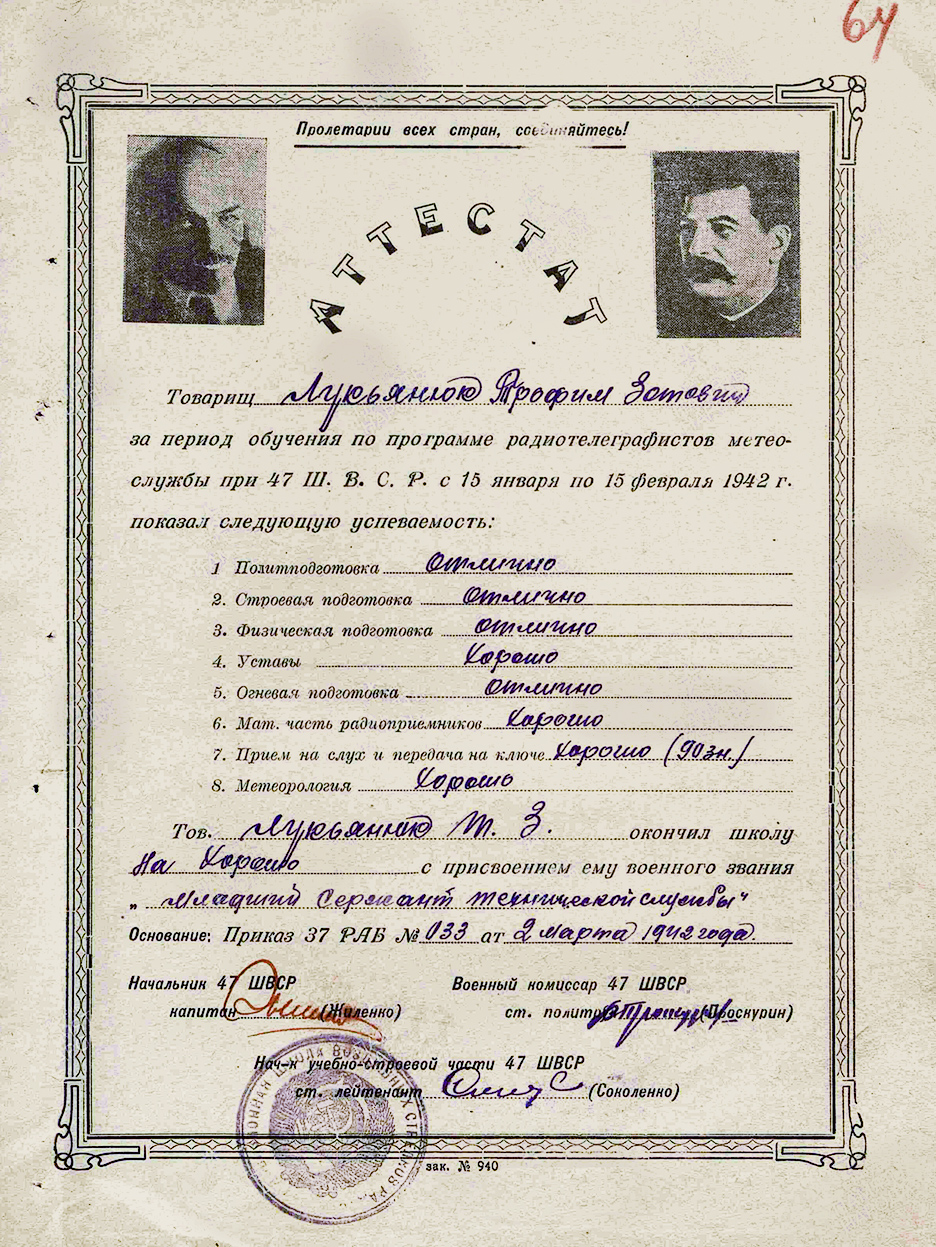 64
Пролетарии всех стран, соединяйтесь!
АТТЕСТАТ
Товарищ Лукьянюк Трофим Зотович
за период обучения по программе радиотелеграфистов метео-
службы при 47 Ш. В. С. Р. с 15 января по 15 февраля 1942 г.
показал следующую успеваемость:
1 Политподготовка отлично
2. Строевая подготовка отлично
3. Физическая подготовка отлично
4. Уставы Хорошо
5. Огневая подготовка отлично
6. Мат. часть радиоприемников Хорошо
7. Прием на слух и передача на ключе Хорошо (90 зн.)
8. Метеорология Хорошо
Тов. Лукьянюк Т. З. окончил школу
На Хорошо с присвоением ему военного звания
„Младший Сержант технической службы"
Основание: Приказ 37 РАБ № 033 от 2 марта 1942 года.
Начальник 47 ШВСР
капитан (Жиленко)
Военный комиссар 47 ШВСР
ст. политрук (Проскурин)
Нач-к учебно-строевой части 47 ШВСР
ст. лейтенант (Соколенко)
ШКОЛА ВОЗДУШНЫХ СТРЕЛКОВ
зак. № 940